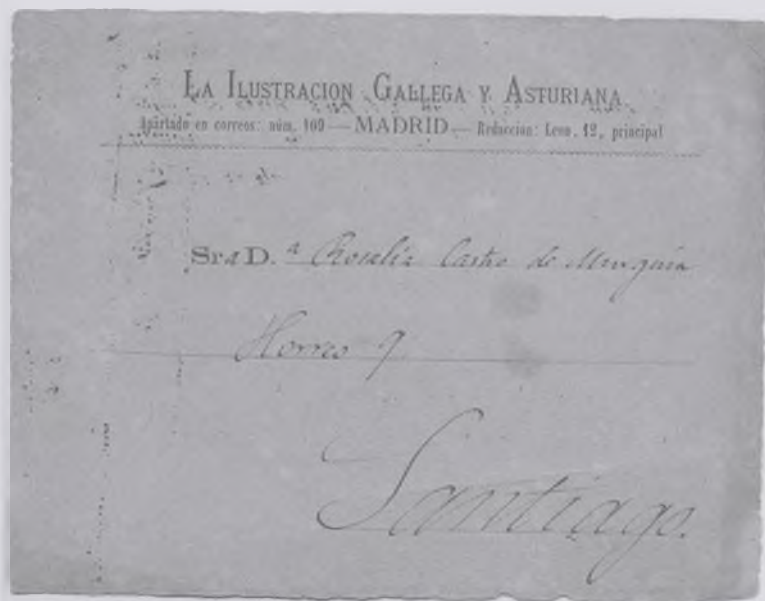 LA ILUSTRACION GALLEGA Y ASTURIANA
Apartado en correos: núm. 109 — MADRID — Redaccion: Leon, 12, principal
Sra D.ª Rosalía Castro de Murguía
Horreo 9
Santiago.